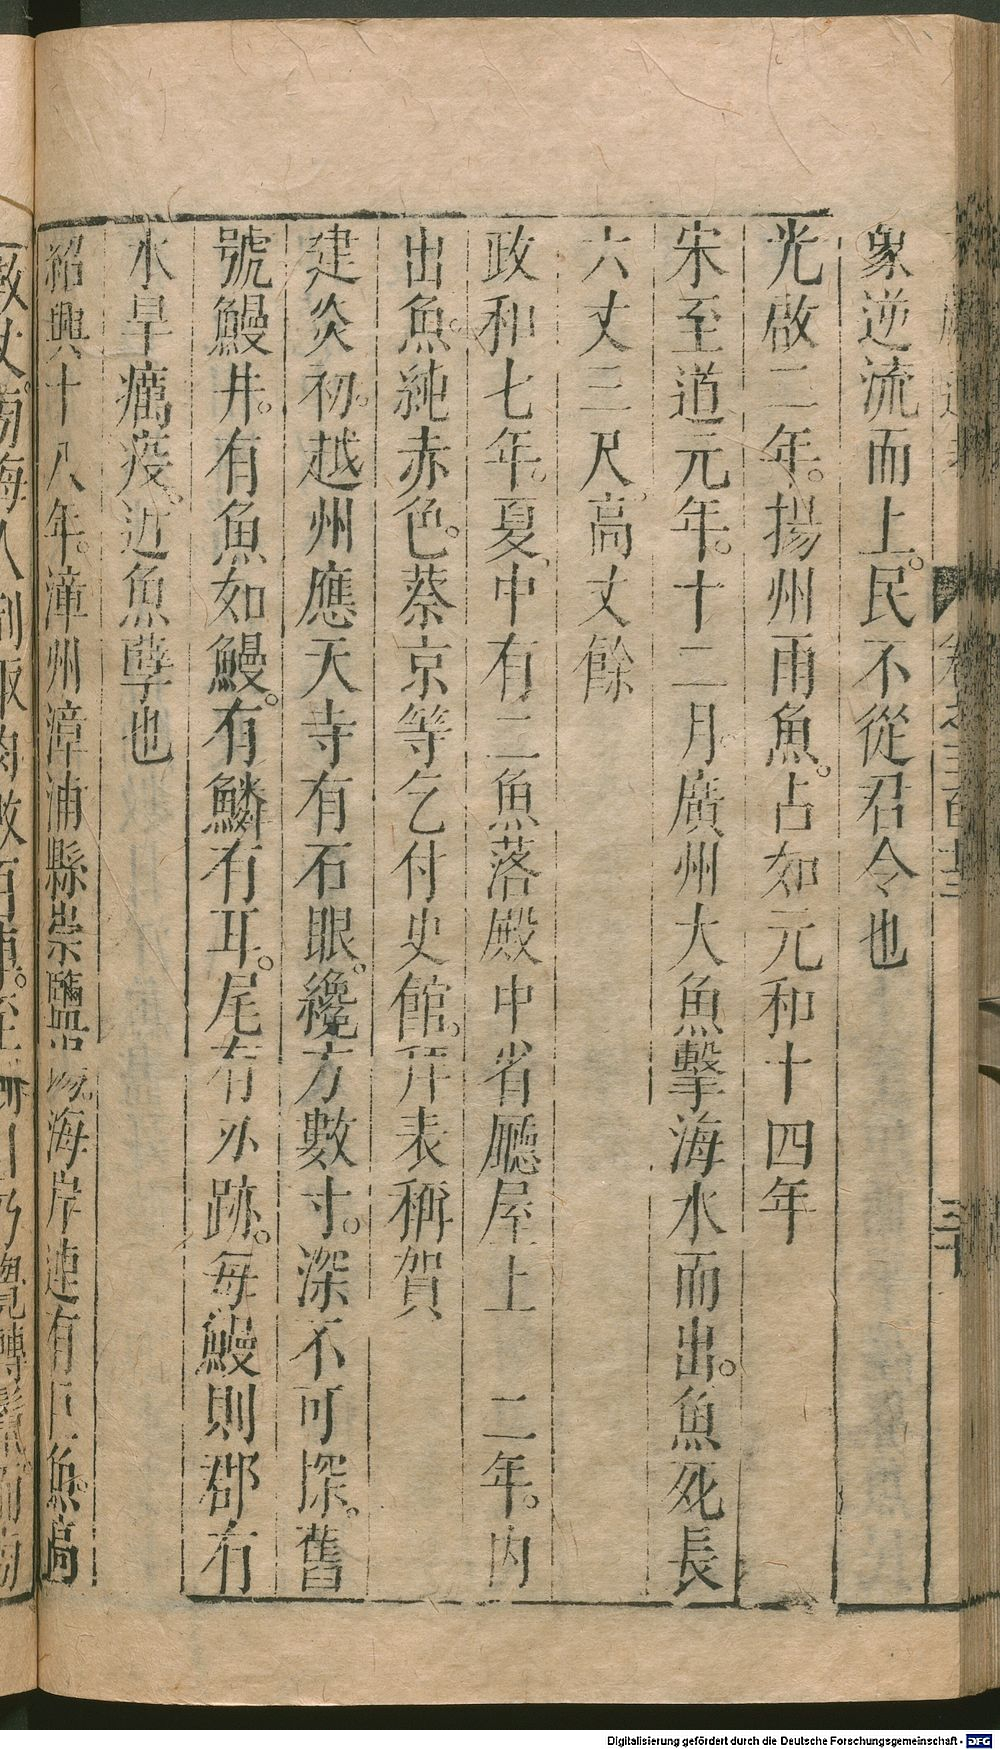 象逆流而上。民不從君令也
光啟二年。揚州雨魚。占如元和十四年
宋至道元年。十二月。廣州大魚擊海水而出。魚死長
六丈三尺。高丈餘
政和七年。夏、中有二魚落殿中省廳屋上 二年。內
出魚。純赤色。蔡京等乞付史館。拜表稱賀
建炎初。越州應天寺有石眼。纔方數寸。深不可深。舊
號鰻井。有魚如鰻。有鱗有耳。尾有小跡。每鰻則郡有
水旱癘疫。近魚孽也
紹興十八年。漳州漳浦縣崇鹽場。海岸連有巨魚。高
Digitalisierung gefördert durch die Deutsche Forschungsgemeinschaft - DFG